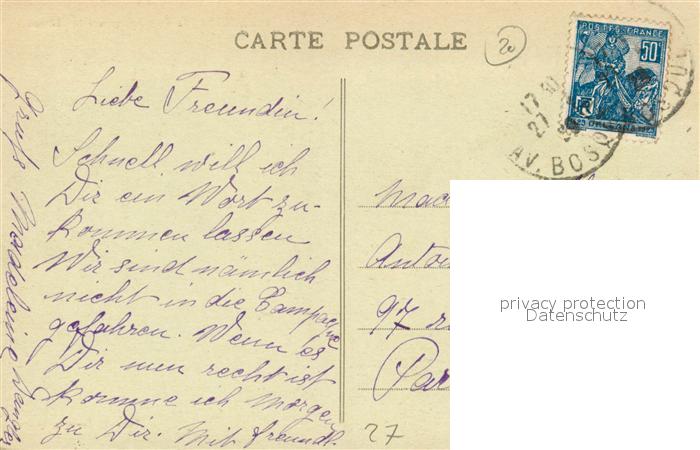 CARTE POSTALE
20
POSTES FRANCE
50c
17
27
AV. BOSQ
Liebe Freundin!
Schnell will ich
Dir ein Wort zu-
kommen lassen
Wir sind nämlich
nicht in die Campagne
gefahren. Wenn es
Dir nun recht ist
komme ich morgen
zu Dir. Mit freundl.
Madeleine
97
27
privacy protection
Datenschutz